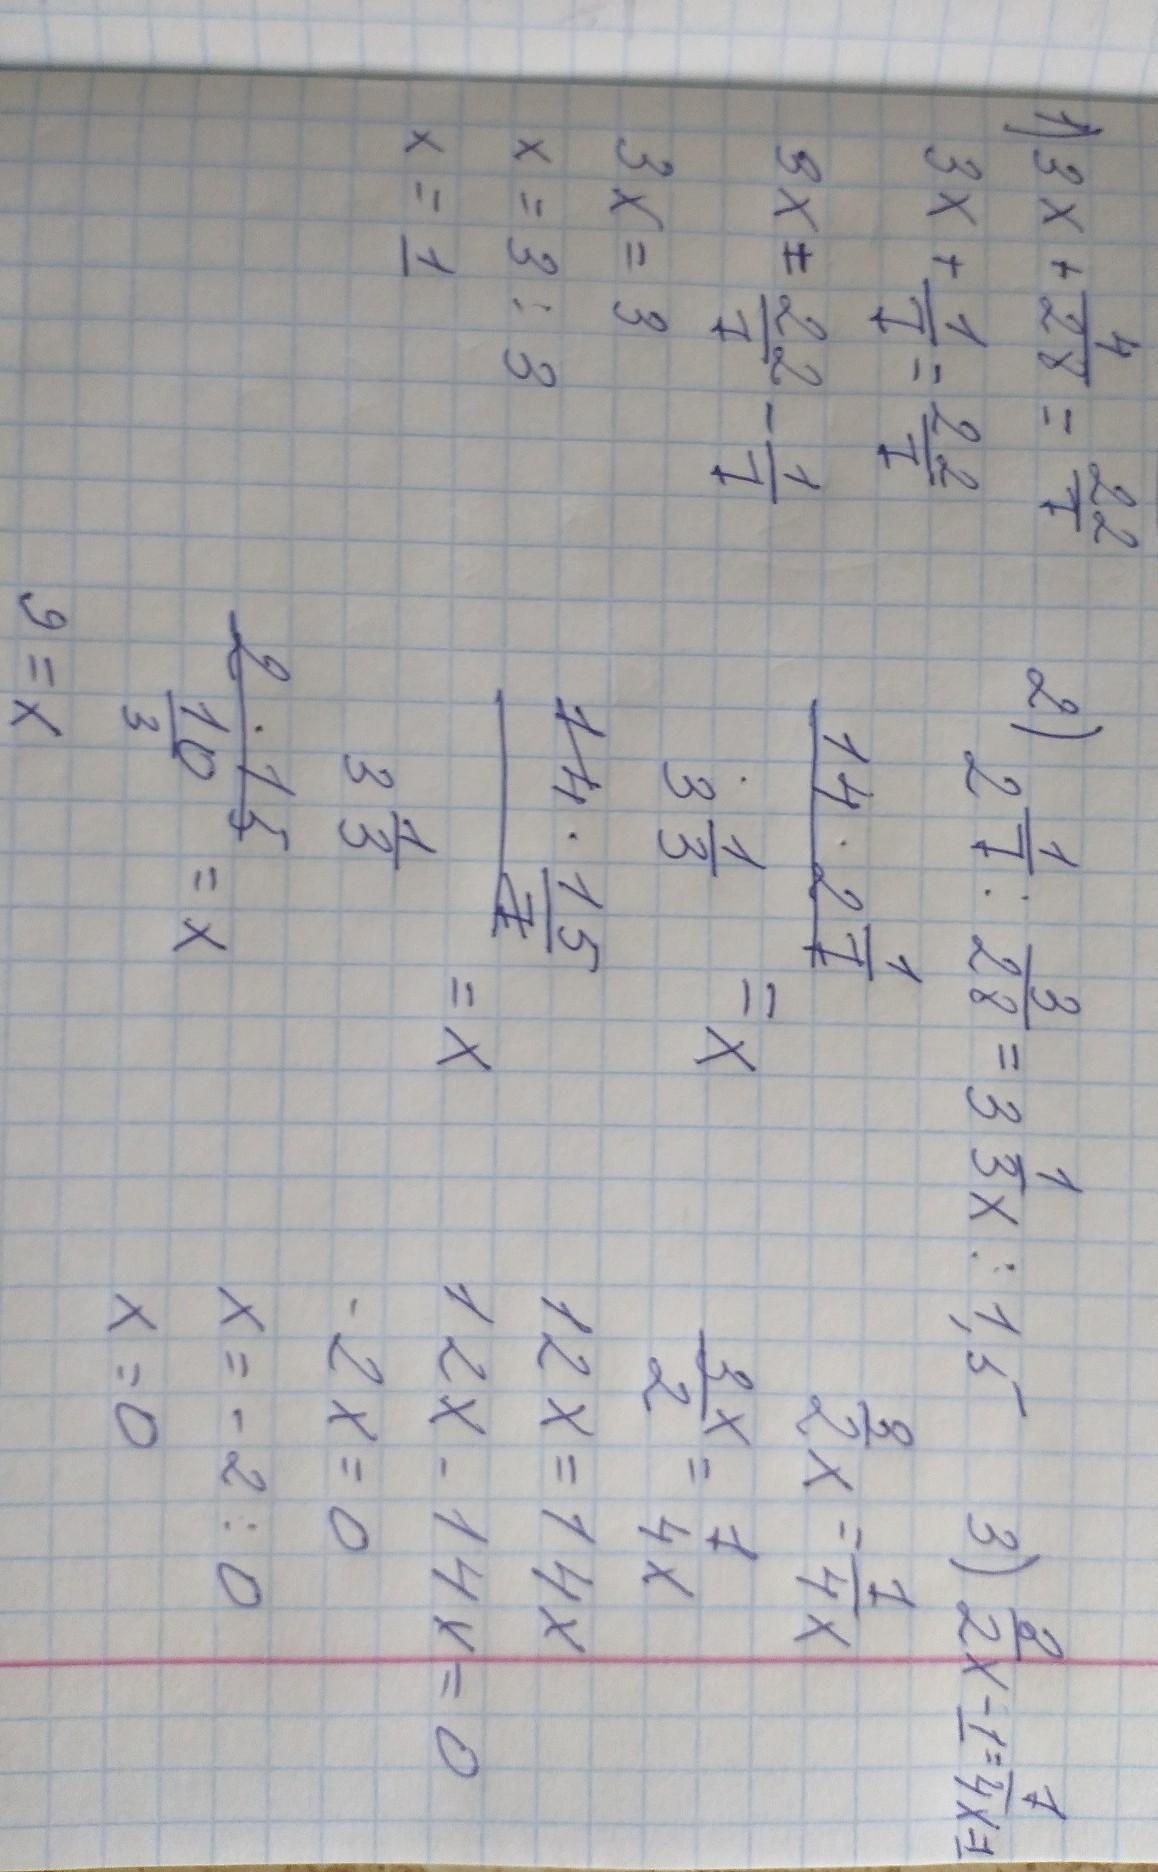 1) 3x + 4/28 = 22/7
3x + 1/7 = 22/7
3x = 22/7 - 1/7
3x = 3
x = 3 : 3
x = 1
2)
2 1/7 : 3/28 = 3 1/3 x : 1,5
14 · 2 1/7
3 1/3
= x
14 · 15/7
3 1/3
= x
2 · 15
10/3
= x
9 = x
3) 3/2 x - 1 = 7/4 x - 1
3/2 x = 7/4 x
3/2 x = 7/4 x
12x = 14x
12x - 14x = 0
-2x = 0
x = -2 : 0
x = 0